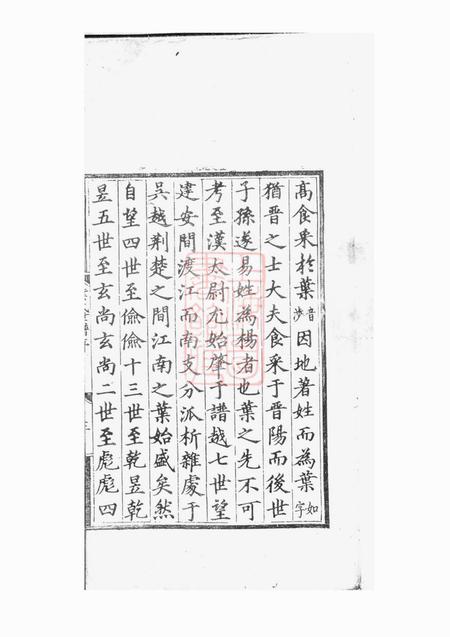 高食采於葉音涉因地著姓而為葉如字
猶晋之士大夫食采于晋陽而後世
子孫遂易姓為楊者也葉之先不可
考至漢太尉尤始肇于譜越七世望
建安間渡江而南支分派析雜處于
吳越荆楚之間江南之葉始盛矣然
自望四世至儉儉十三世至乾昱乾
昱五世至玄尚玄尚二世至彪彪四